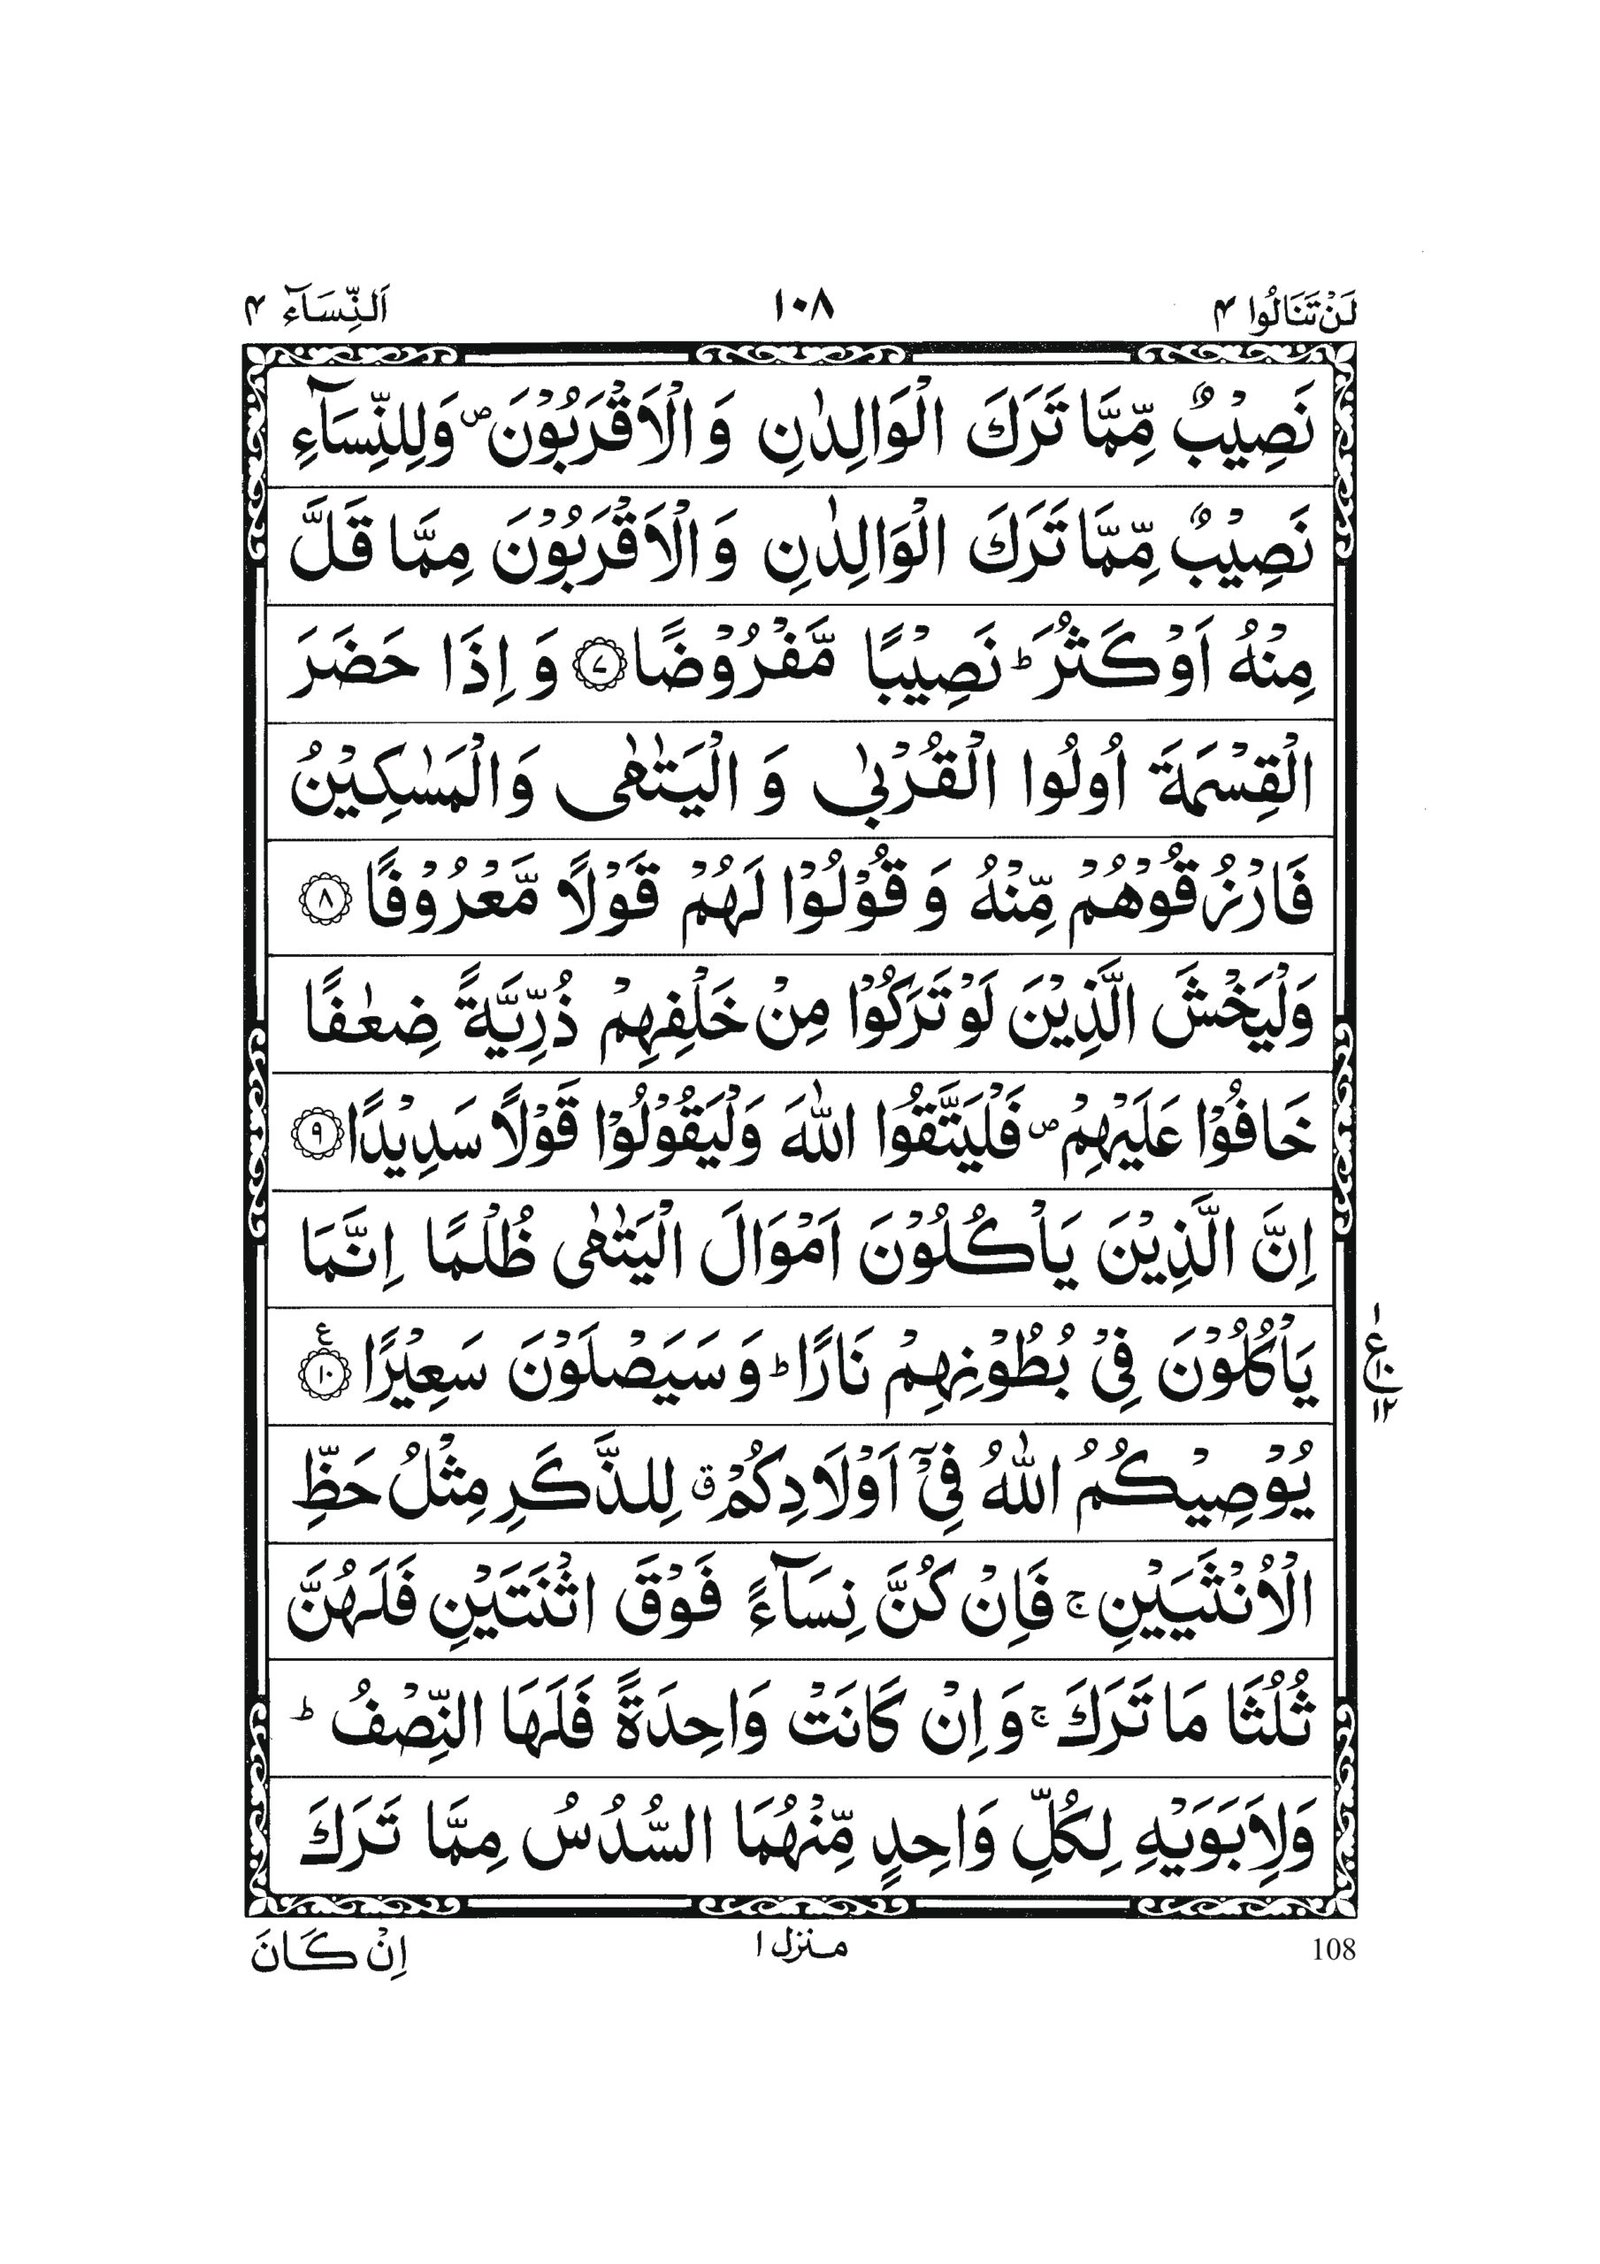 لَنْ تَنَالُوا ۴
۱۰۸
اَلنِّسَآء ۴
نَصِیْبٌ مِّمَّا تَرَكَ الْوَالِدٰنِ وَ الْاَقْرَبُوْنَ ۪ وَلِلنِّسَآءِ
نَصِیْبٌ مِّمَّا تَرَكَ الْوَالِدٰنِ وَ الْاَقْرَبُوْنَ مِمَّا قَلَّ
مِنْهُ اَوْ كَثُرَ ؕ نَصِیْبًا مَّفْرُوْضًا ۷ وَ اِذَا حَضَرَ
الْقِسْمَةَ اُولُوا الْقُرْبٰی وَ الْیَتٰمٰی وَ الْمَسٰكِیْنُ
فَارْزُقُوْهُمْ مِّنْهُ وَ قُوْلُوْا لَهُمْ قَوْلًا مَّعْرُوْفًا ۸
وَلْیَخْشَ الَّذِیْنَ لَوْ تَرَكُوْا مِنْ خَلْفِهِمْ ذُرِّیَّةً ضِعٰفًا
خَافُوْا عَلَیْهِمْ ۪ فَلْیَتَّقُوا اللّٰهَ وَلْیَقُوْلُوْا قَوْلًا سَدِیْدًا ۹
اِنَّ الَّذِیْنَ یَاْكُلُوْنَ اَمْوَالَ الْیَتٰمٰی ظُلْمًا اِنَّمَا
یَاْكُلُوْنَ فِیْ بُطُوْنِهِمْ نَارًا ؕ وَ سَیَصْلَوْنَ سَعِیْرًا ۱۰ ع
۱
ع
۱۰
۱۲
یُوْصِیْكُمُ اللّٰهُ فِیْۤ اَوْلَادِكُمْ ق لِلذَّكَرِ مِثْلُ حَظِّ
الْاُنْثَیَیْنِ ۚ فَاِنْ كُنَّ نِسَآءً فَوْقَ اثْنَتَیْنِ فَلَهُنَّ
ثُلُثَا مَا تَرَكَ ۚ وَ اِنْ كَانَتْ وَاحِدَةً فَلَهَا النِّصْفُ ؕ
وَلِاَبَوَیْهِ لِكُلِّ وَاحِدٍ مِّنْهُمَا السُّدُسُ مِمَّا تَرَكَ
108
منزل ۱
اِنْ كَانَ